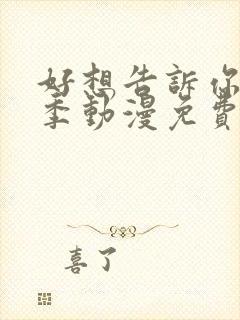 好想告訴你
季動漫免費
喜了